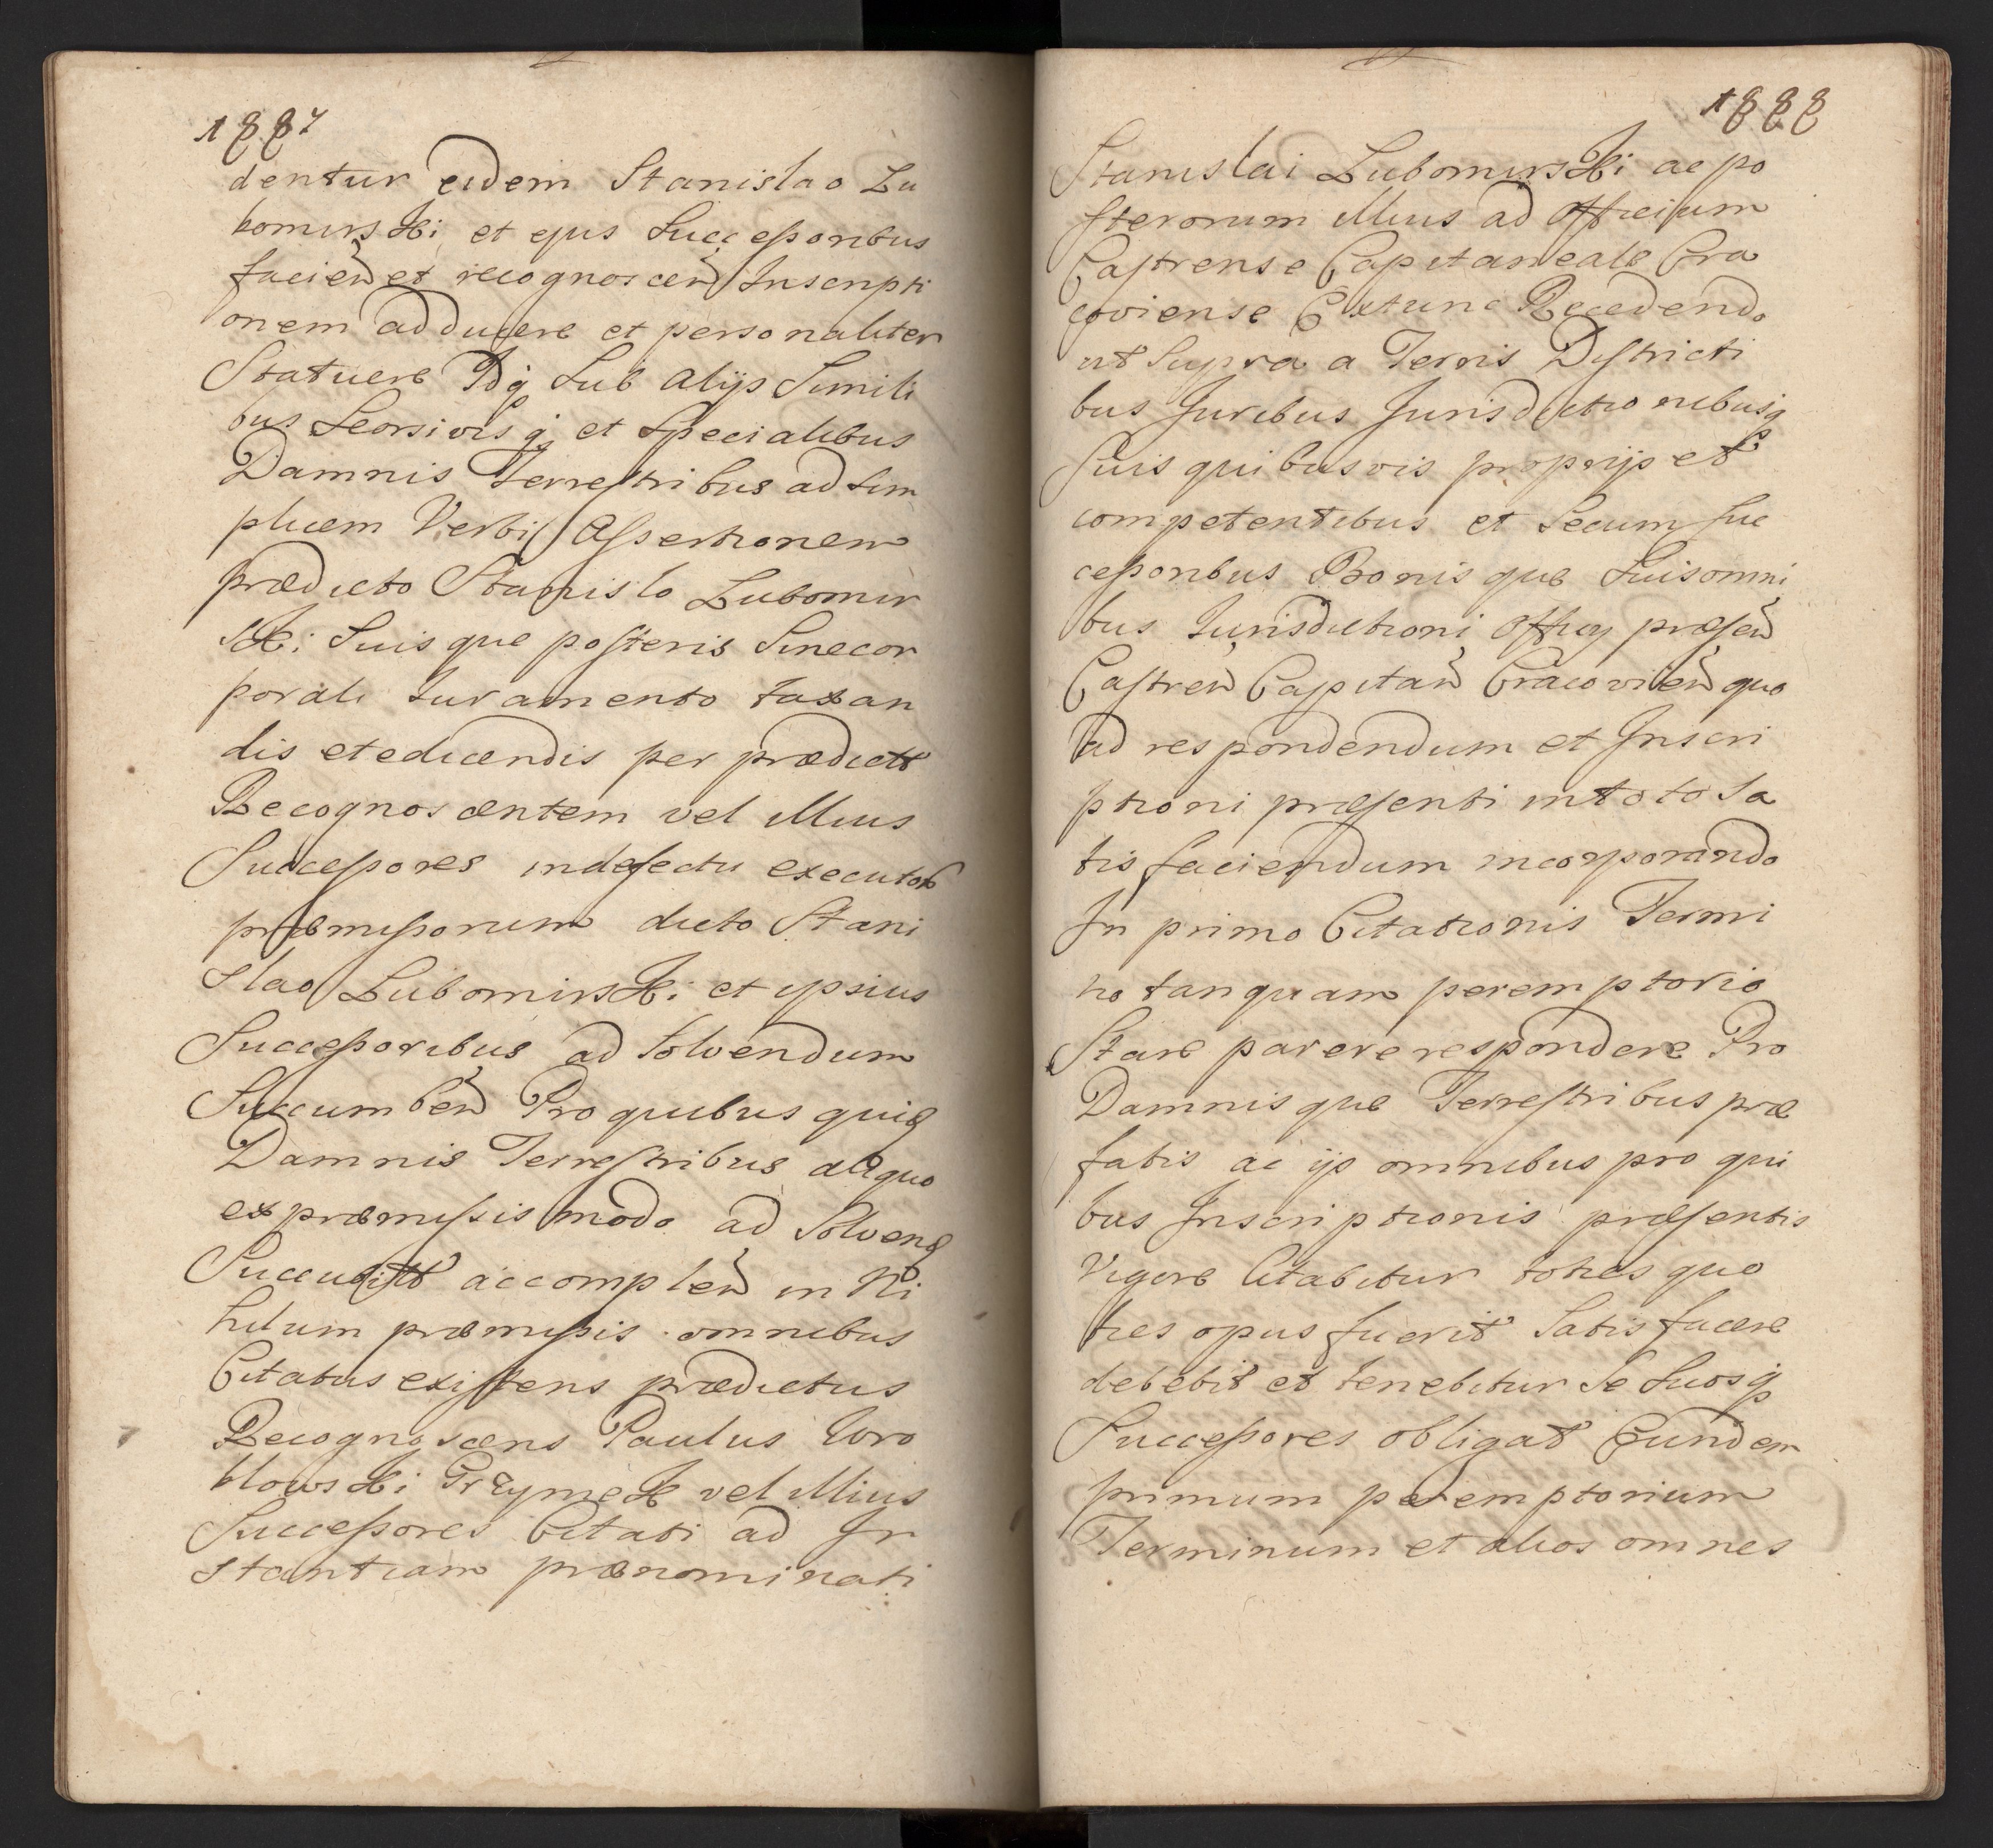 1887
dentur eidem Stanislao Lu
bomirski et ejus Successoribus
facien et recognoscen Inscripti
onem adducere et personaliter
Statuere Idq sub alijs Simili
bus Seorsivisq et specialibus
Damnis Terrestribus ad sim
plicem Verbi Assertionem
prædicto Stanislo Lubomir
ski Suisque posteris Sinecor
porali Juramento taxan
dis et edicendis per prædictt
Recognoscentem vel illius
Successores in defectu execut
præmissorum dicto Stani
slao Lubomirski et ipsius
Successoribus ad solvendum
Succumben Pro quibus quid
Damnis Terrestribus aliquo
ex præmissis modo ad Solvend
Succubitt accomplen in Ni
hilum præmissis omnibus
Citatus existens prædictus
Recognoscens Paulus Wro
blowski Grzymek vel illius
Successores Citati ad In
stantiam prænominati
1888
Stanislai Lubomirski ac po
sterorum illius ad Officium
Castrense Capitaneale Cra
coviense Extunc Recedendo
ut Supra a Terris Districti
bus Juribus Jurisdictionibusq
Suis quibusvis proprijs et
competentibus et Secum Suc
cessoribus Bonisque Suis omni
bus Jurisdictioni Officij præsen
Castren Capitan Cracovien quo
ad respondendum et Inscri
ptioni præsenti in toto Sa
tisfaciendum incorporando
In primo Citationis Termi
no tanquam peremptorio
Stare parere respondere Pro
Damnisque Terrestribus præ
fatis ac ijs omnibus pro qui
bus Inscriptionis præsentis
Vigore Citabitur toties quo
ties opus fuerit Satisfacere
debebit et tenebitur Se Suosq
Successores obligat Eundem
primum peremptorium
Terminum et alios omnes